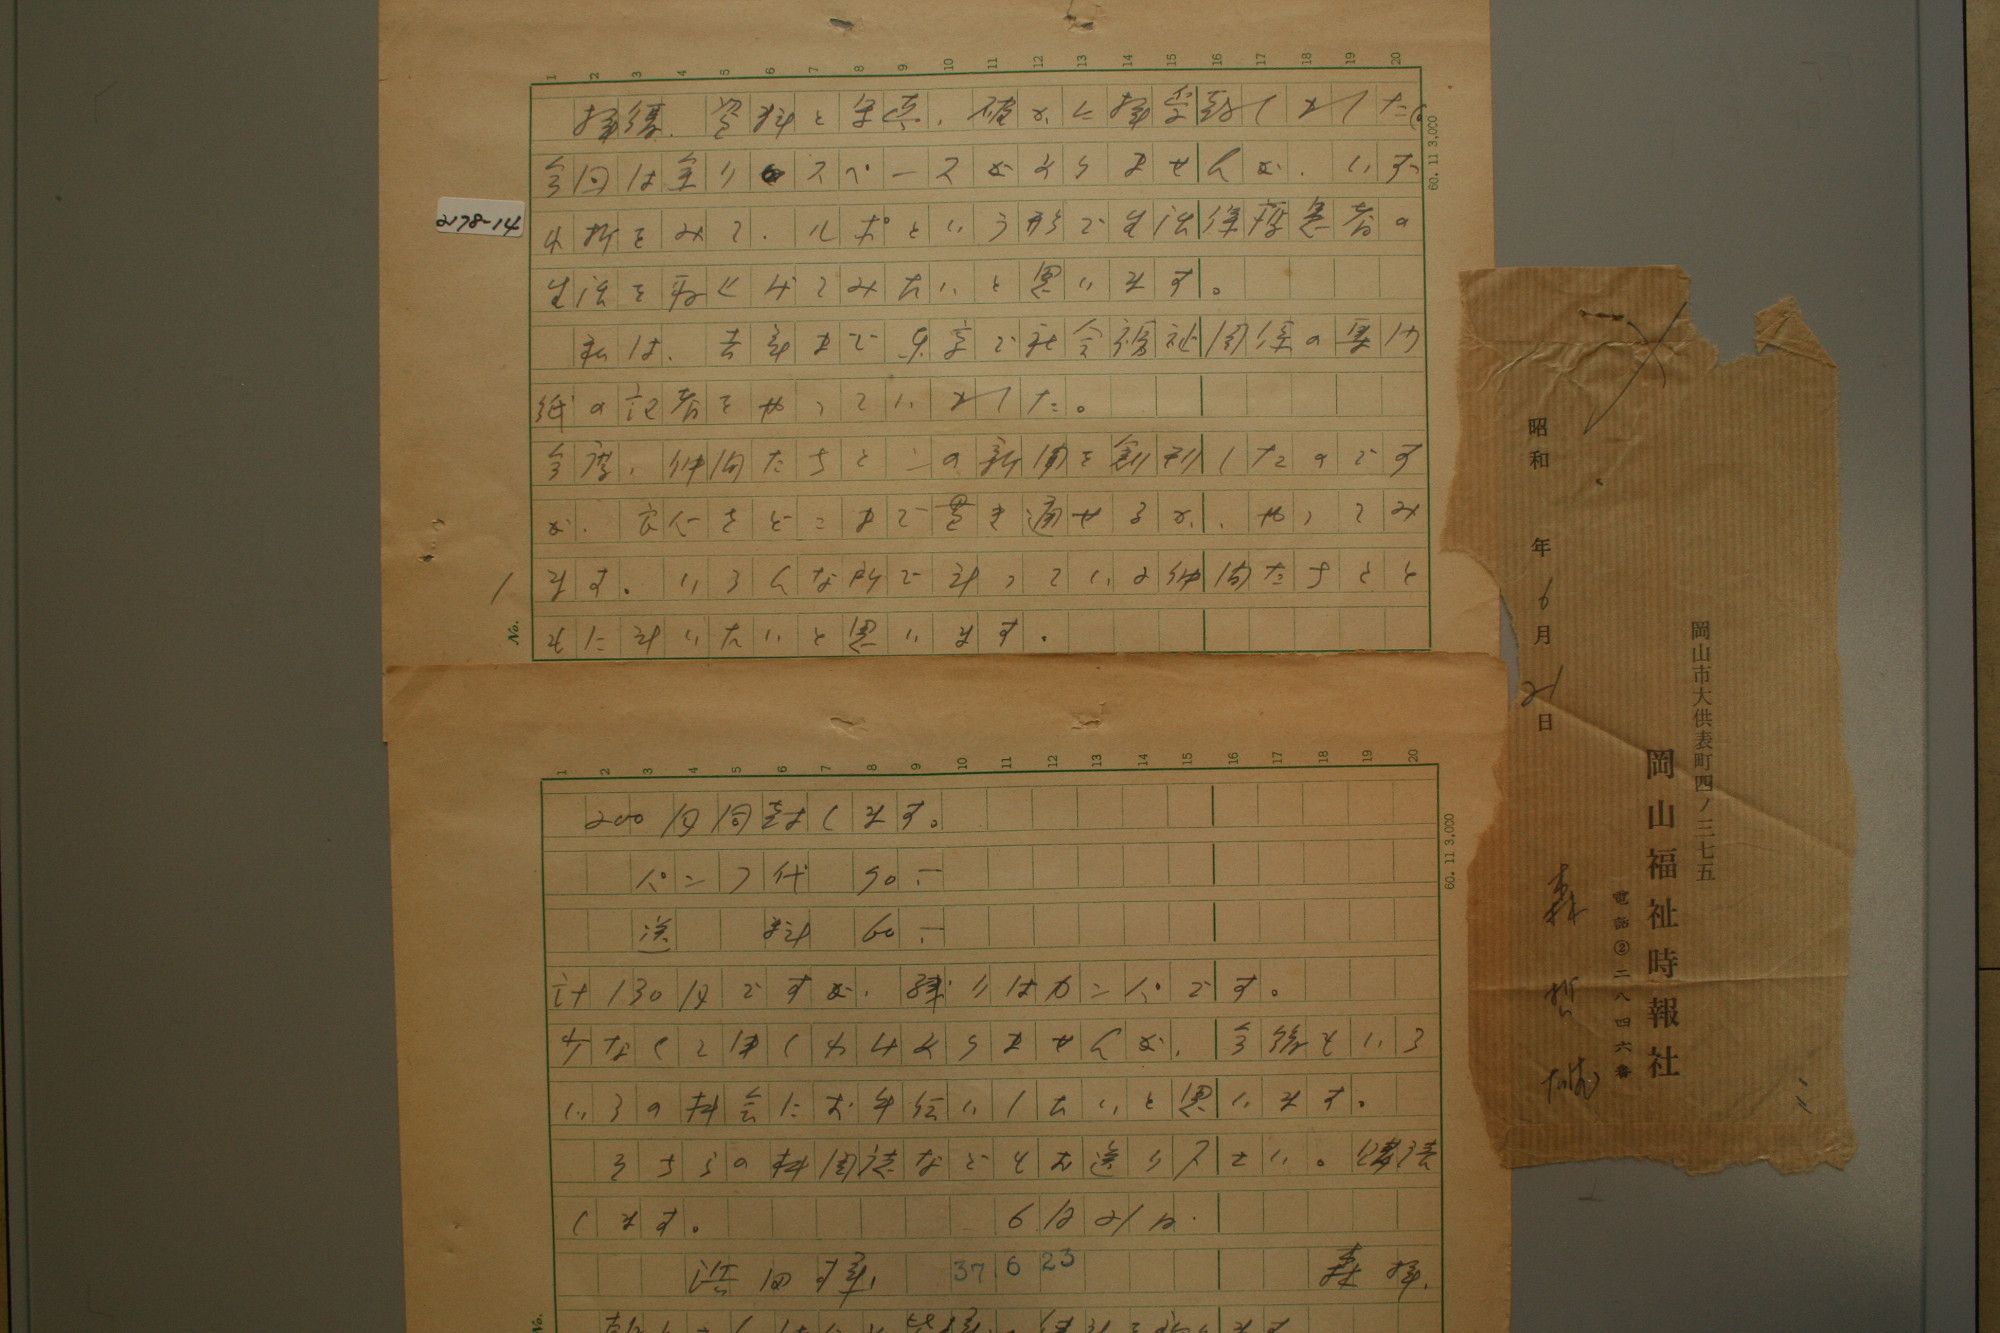 2178-14
1 2 3 4 5 6 7 8 9 10 11 12 13 14 15 16 17 18 19 20
拝復、資料と要点、確かに拝受致しました。
今回は余りスペースがありませんが、いず
れ折をみて、ルポという形で生活保護患者の
生活を取上げてみたいと思います。
私は、去年まで東京で社会福祉関係の専門
紙の記者をやっていました。
今度、仲間たちとこの新聞を創刊したのです
が、良心をどこまで貫き通せるか、やってみ
ます。いろんな所で斗っている仲間たちとと
もに斗いたいと思います。
No. 1
60. 11 3,000
1 2 3 4 5 6 7 8 9 10 11 12 13 14 15 16 17 18 19 20
200円同封します。
パンフ代 70.―
送 料 60.―
計130円ですが、残りはカンパです。
少なくて申しわけありませんが、今後もいろ
いろの機会にお手伝いしたいと思います。
そちらの機関誌などもお送り下さい。購読
します。 6月21日.
37. 6 23
森 拝.
No.
60. 11 3,000
昭和 年 6月 21日
岡山市大供表町四ノ三七五
岡山福祉時報社
電話②二八四六番
森 哲